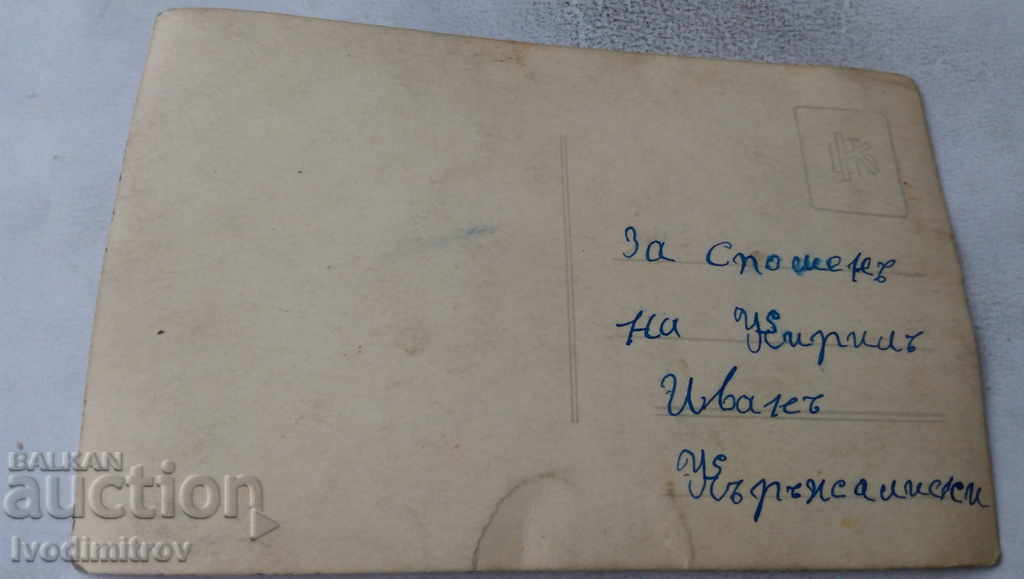 За Споменъ
на Кирилъ
Иванъ
Кържалиски
BALKAN
auction
Ivodimitrov